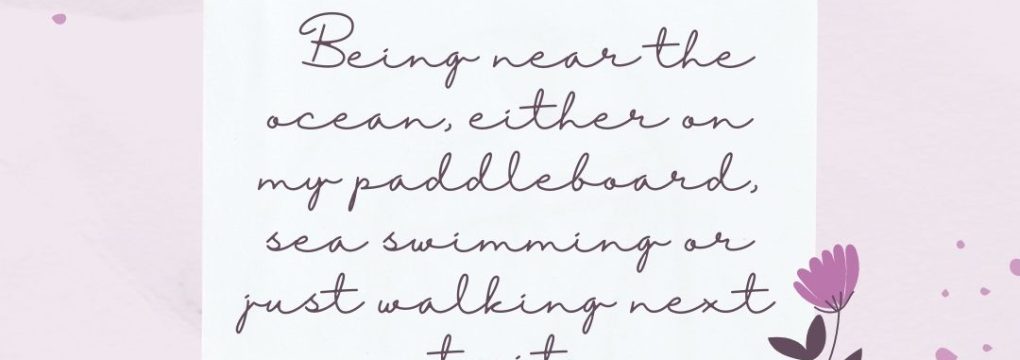 Being near the
ocean, either on
my paddleboard,
sea swimming or
just walking next